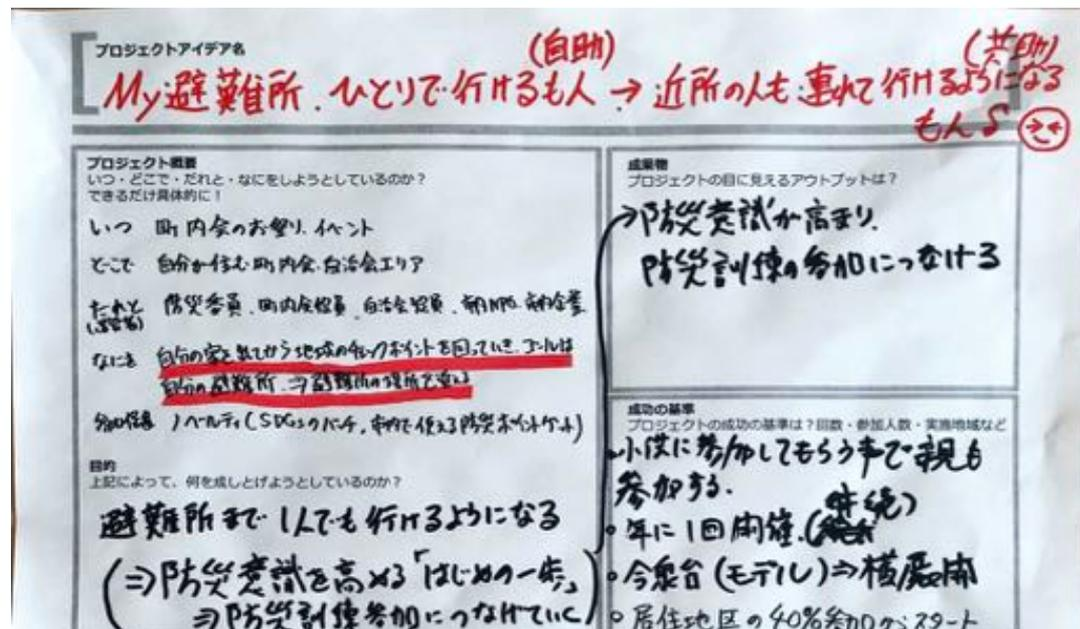 プロジェクトアイデア名
(自助)
(共助)
My避難所、ひとりで行けるもん → 近所の人も連れて行けるようになる
もん
プロジェクト概要
いつ・どこで・だれと・なにをしようとしているのか?
できるだけ具体的に!
いつ 町内会のお祭り、イベント
どこで 自分が住む町内会・自治会エリア
だれと 防災委員、町内会役員、自治会役員、市内NPO、市内企業
なにを 自分の家を出てから地域のチェックポイントを回っていき、ゴールは
自分の避難所。⇒避難所の場所を覚える
ノベルティ(SDGsのバッチ、市内で使える防災ポイント
目的
上記によって、何を成しとげようとしているのか?
避難所まで1人でも行けるようになる
(⇒防災意識を高める「はじめの一歩」
⇒防災訓練参加につなげていく)
成果物
プロジェクトの目に見えるアウトプットは?
→防災意識が高まり、
防災訓練の参加につなげる
成功の基準
プロジェクトの成功の基準は?回数・参加人数・実施地域など
・小供に参加してもらう事で親も
参加する。
継続)
・年に1回開催。(
・今泉台(モデル)⇒横展開
・居住地区の40%参加からスタート